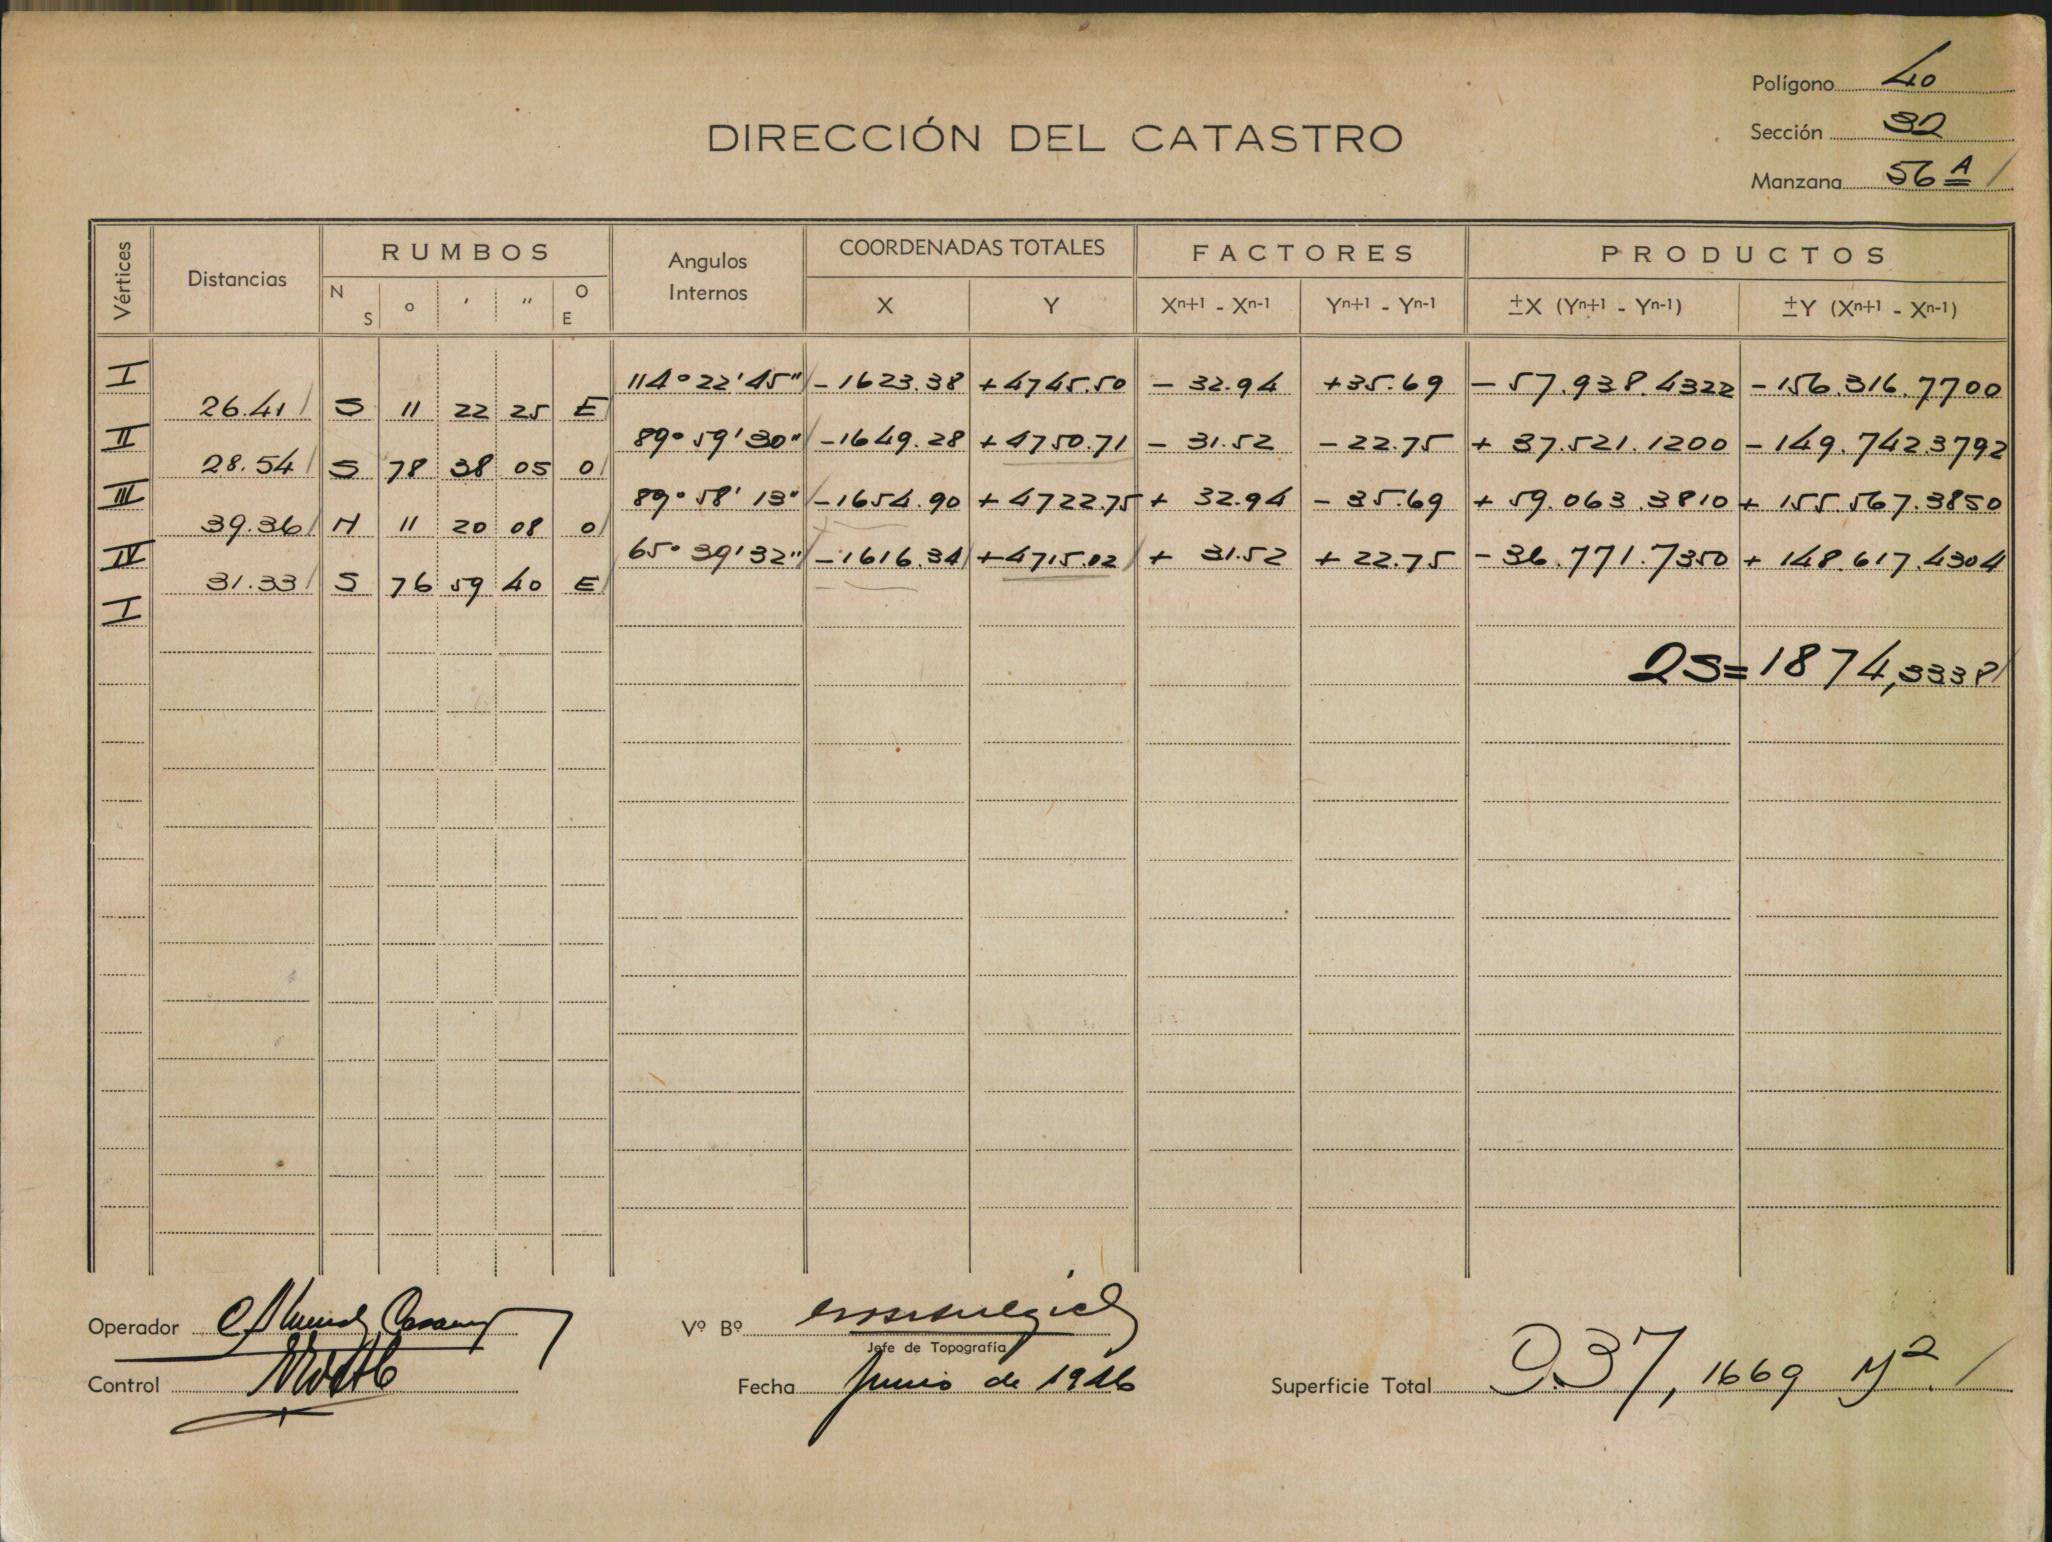 Polígono 40
DIRECCIÓN DEL CATASTRO
Sección 32
Manzana 56 A
Vértices Distancias RUMBOS Angulos Internos COORDENADAS TOTALES FACTORES PRODUCTOS
N S ° ' " O E X Y Xn+1 - Xn-1 Yn+1 - Yn-1 ±X (Yn+1 - Yn-1) ±Y (Xn+1 - Xn-1)
I 114° 22' 45" -1623.38 +4745.50 - 32.94 +35.69 -57.938.4322 -156.316.7700
26.41 S 11 22 25 E
II 89° 59' 30" -1649.28 +4750.71 - 31.52 -22.75 + 37.521.1200 -149.742.3792
28.54 S 78 38 05 O
III 89° 58' 13" -1654.90 +4722.75 + 32.94 - 35.69 + 59.063.3810 + 155.567.3850
39.36 N 11 20 08 O
IV 65° 39' 32" -1616.34 +4715.02 + 31.52 + 22.75 -36.771.7350 + 148.617.4304
31.33 S 76 59 40 E
I
2S=1874,3338
Operador
Vº Bº
Jefe de Topografía
Control
Fecha Junio de 1946
Superficie Total 937,1669 M2.